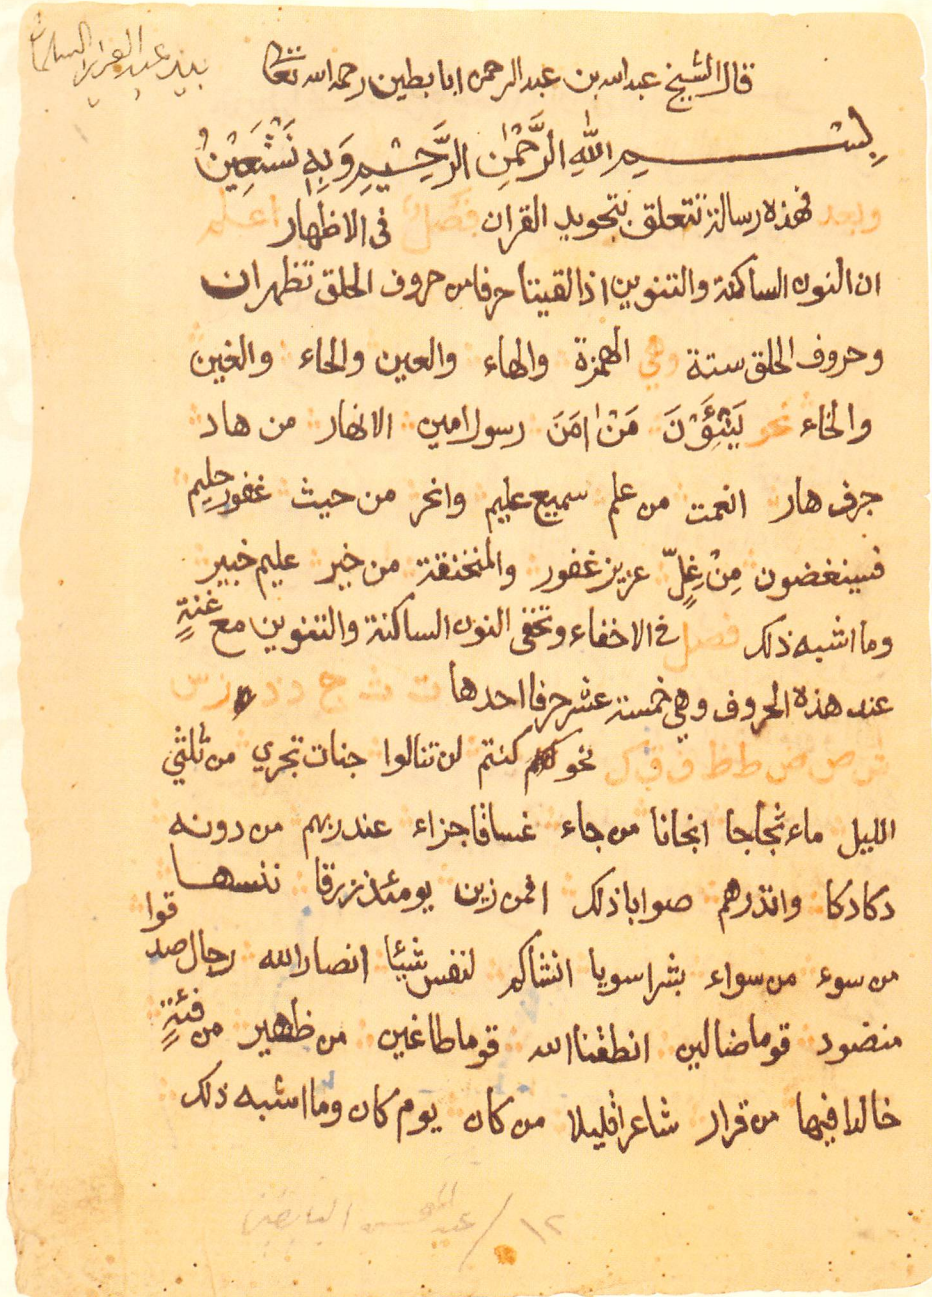 بيد عبد العزيز السلمان
قال الشيخ عبد الله بن عبد الرحمن ابا بطين رحمه الله تعالى
بِسْمِ اللهِ الرَّحْمٰنِ الرَّحِيْمِ وَبِهِ نَسْتَعِيْنُ
وبعد فهذه رسالة تتعلق بتجويد القران فصل في الاظهار اعلم
ان النون الساكنة والتنوين اذا لقيتا حرفا من حروف الحلق تظهران
وحروف الحلق ستة وهي الهمزة والهاء والعين والحاء والغين
والخاء نحو يَنْئَوْنَ مَنْ اٰمَنَ رسول امين الانهار من هاد
جرف هار انعمت من علم سميع عليم وانحر من حيث غفور حليم
فسينغضون مِنْ غِلٍّ عزيز غفور والمنخنقة من خير عليم خبير
وما اشبه ذلك فصل في الاخفاء وتخفى النون الساكنة والتنوين مع غنةٍ
عند هذه الحروف وهي خمسة عشر حرفا احدها ت ث ج د ذ ز س
ش ص ض ط ظ ف ق ك نحو كنتم لن تنالوا جنات تجري من ثلثي
الليل ماء ثجاجا انجانا من جاء غساقا جزاء عند ربهم من دونه
دكا دكا وانذرهم صوابا ذلك افمن زين يومئذ زرقا ننسها
من سوء من سواء بشرا سويا انشاكم لنفس شيئا انصار الله رجال صدقوا
منضود قوما ضالين انطقنا الله قوما طاغين من ظهير من فئةٍ
خالدا فيها من قرار شاعر قليلا من كان يوم كان وما اشبه ذلك
١٢ / عبد المحسن البابطين